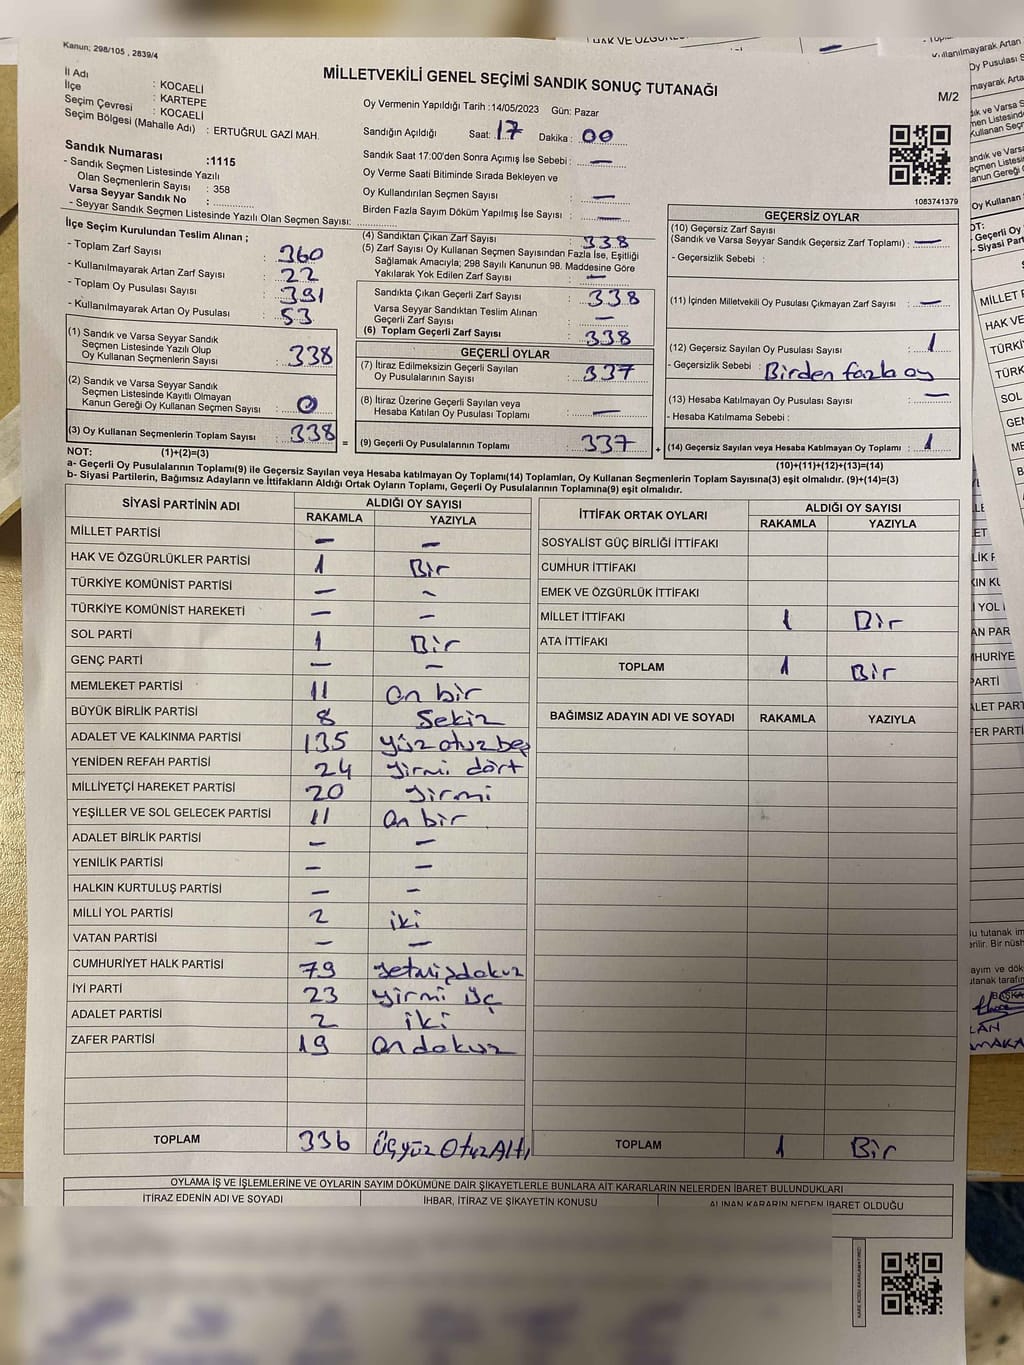 Kanun; 298/105 , 2839/4
MİLLETVEKİLİ GENEL SEÇİMİ SANDIK SONUÇ TUTANAĞI
M/2
İl Adı : KOCAELİ
İlçe : KARTEPE
Seçim Çevresi : KOCAELİ
Seçim Bölgesi (Mahalle Adı) : ERTUĞRUL GAZİ MAH.
Sandık Numarası :1115
- Sandık Seçmen Listesinde Yazılı
Olan Seçmenlerin Sayısı : 358
Varsa Seyyar Sandık No :
- Seyyar Sandık Seçmen Listesinde Yazılı Olan Seçmen Sayısı:
Oy Vermenin Yapıldığı Tarih :14/05/2023 Gün: Pazar
Sandığın Açıldığı Saat: 17 Dakika : 00
Sandık Saat 17:00'den Sonra Açımış İse Sebebi : —
Oy Verme Saati Bitiminde Sırada Bekleyen ve
Oy Kullandırılan Seçmen Sayısı : —
Birden Fazla Sayım Döküm Yapılmış İse Sayısı : —
1083741379
İlçe Seçim Kurulundan Teslim Alınan ;
- Toplam Zarf Sayısı : 360
- Kullanılmayarak Artan Zarf Sayısı : 22
- Toplam Oy Pusulası Sayısı : 391
- Kullanılmayarak Artan Oy Pusulası : 53
(1) Sandık ve Varsa Seyyar Sandık
Seçmen Listesinde Yazılı Olup
Oy Kullanan Seçmenlerin Sayısı : 338
(2) Sandık ve Varsa Seyyar Sandık
Seçmen Listesinde Kayıtlı Olmayan
Kanun Gereği Oy Kullanan Seçmen Sayısı : 0
(3) Oy Kullanan Seçmenlerin Toplam Sayısı : 338 =
(4) Sandıktan Çıkan Zarf Sayısı : 338
(5) Zarf Sayısı Oy Kullanan Seçmen Sayısından Fazla İse, Eşitliği
Sağlamak Amacıyla; 298 Sayılı Kanunun 98. Maddesine Göre
Yakılarak Yok Edilen Zarf Sayısı : —
Sandıkta Çıkan Geçerli Zarf Sayısı : 338
Varsa Seyyar Sandıktan Teslim Alınan
Geçerli Zarf Sayısı : —
(6) Toplam Geçerli Zarf Sayısı : 338
GEÇERLİ OYLAR
(7) İtiraz Edilmeksizin Geçerli Sayılan
Oy Pusulalarının Sayısı : 337
(8) İtiraz Üzerine Geçerli Sayılan veya
Hesaba Katılan Oy Pusulası Toplamı : —
(9) Geçerli Oy Pusulalarının Toplamı : 337 +
GEÇERSİZ OYLAR
(10) Geçersiz Zarf Sayısı
(Sandık ve Varsa Seyyar Sandık Geçersiz Zarf Toplamı) : —
- Geçersizlik Sebebi :
(11) İçinden Milletvekili Oy Pusulası Çıkmayan Zarf Sayısı : —
(12) Geçersiz Sayılan Oy Pusulası Sayısı : 1
- Geçersizlik Sebebi : Birden fazla oy
(13) Hesaba Katılmayan Oy Pusulası Sayısı : —
- Hesaba Katılmama Sebebi :
(14) Geçersiz Sayılan veya Hesaba Katılmayan Oy Toplamı : 1
NOT: (1)+(2)=(3)
(10)+(11)+(12)+(13)=(14)
a- Geçerli Oy Pusulalarının Toplamı(9) ile Geçersiz Sayılan veya Hesaba katılmayan Oy Toplamı(14) Toplamları, Oy Kullanan Seçmenlerin Toplam Sayısına(3) eşit olmalıdır. (9)+(14)=(3)
b- Siyasi Partilerin, Bağımsız Adayların ve İttifakların Aldığı Ortak Oyların Toplamı, Geçerli Oy Pusulalarının Toplamına(9) eşit olmalıdır.
SİYASİ PARTİNİN ADI ALDIĞI OY SAYISI
RAKAMLA YAZIYLA
MİLLET PARTİSİ — —
HAK VE ÖZGÜRLÜKLER PARTİSİ 1 Bir
TÜRKİYE KOMÜNİST PARTİSİ — —
TÜRKİYE KOMÜNİST HAREKETİ — —
SOL PARTİ 1 Bir
GENÇ PARTİ — —
MEMLEKET PARTİSİ 11 on bir
BÜYÜK BİRLİK PARTİSİ 8 Sekiz
ADALET VE KALKINMA PARTİSİ 135 yüz otuz beş
YENİDEN REFAH PARTİSİ 24 yirmi dört
MİLLİYETÇİ HAREKET PARTİSİ 20 yirmi
YEŞİLLER VE SOL GELECEK PARTİSİ 11 on bir
ADALET BİRLİK PARTİSİ — —
YENİLİK PARTİSİ — —
HALKIN KURTULUŞ PARTİSİ — —
MİLLİ YOL PARTİSİ 2 iki
VATAN PARTİSİ — —
CUMHURİYET HALK PARTİSİ 79 yetmişdokuz
İYİ PARTİ 23 yirmi üç
ADALET PARTİSİ 2 iki
ZAFER PARTİSİ 19 on dokuz
TOPLAM 336 Üçyüz Otuz Altı
İTTİFAK ORTAK OYLARI ALDIĞI OY SAYISI
RAKAMLA YAZIYLA
SOSYALİST GÜÇ BİRLİĞİ İTTİFAKI
CUMHUR İTTİFAKI
EMEK VE ÖZGÜRLÜK İTTİFAKI
MİLLET İTTİFAKI 1 Bir
ATA İTTİFAKI
TOPLAM 1 Bir
BAĞIMSIZ ADAYIN ADI VE SOYADI RAKAMLA YAZIYLA
TOPLAM 1 Bir
OYLAMA İŞ VE İŞLEMLERİNE VE OYLARIN SAYIM DÖKÜMÜNE DAİR ŞİKAYETLERLE BUNLARA AİT KARARLARIN NELERDEN İBARET BULUNDUKLARI
İTİRAZ EDENİN ADI VE SOYADI İHBAR, İTİRAZ VE ŞİKAYETİN KONUSU ALINAN KARARIN NEDEN İBARET OLDUĞU